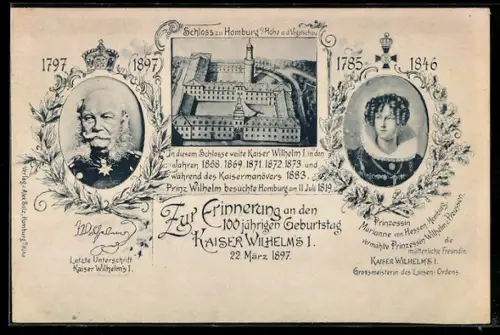 Schloss zu Homburg v/Höhe a.d. Vogelschau
1797 1897
1785 1846
In diesem Schlosse weilte Kaiser Wilhelm I. in den
Jahren 1868. 1869. 1871. 1872. 1873. und
während des Kaisermanövers 1883.
Prinz Wilhelm besuchte Homburg am 11 Juli 1819.
Zur Erinnerung an den
100jährigen Geburtstag
KAISER WILHELM'S I.
22. März 1897.
Wilhelm
Letzte Unterschrift
Kaiser Wilhelm's I.
Prinzessin
Marianne von Hessen-Homburg,
vermählte Prinzessin Wilhelm v. Preussen,
die
mütterliche Freundin
KAISER WILHELM'S I.
Grossmeisterin des Luisen-Ordens
Verlag: Homburg v/Höhe